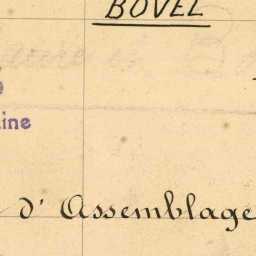 BOVEL
ine
d' Assemblage